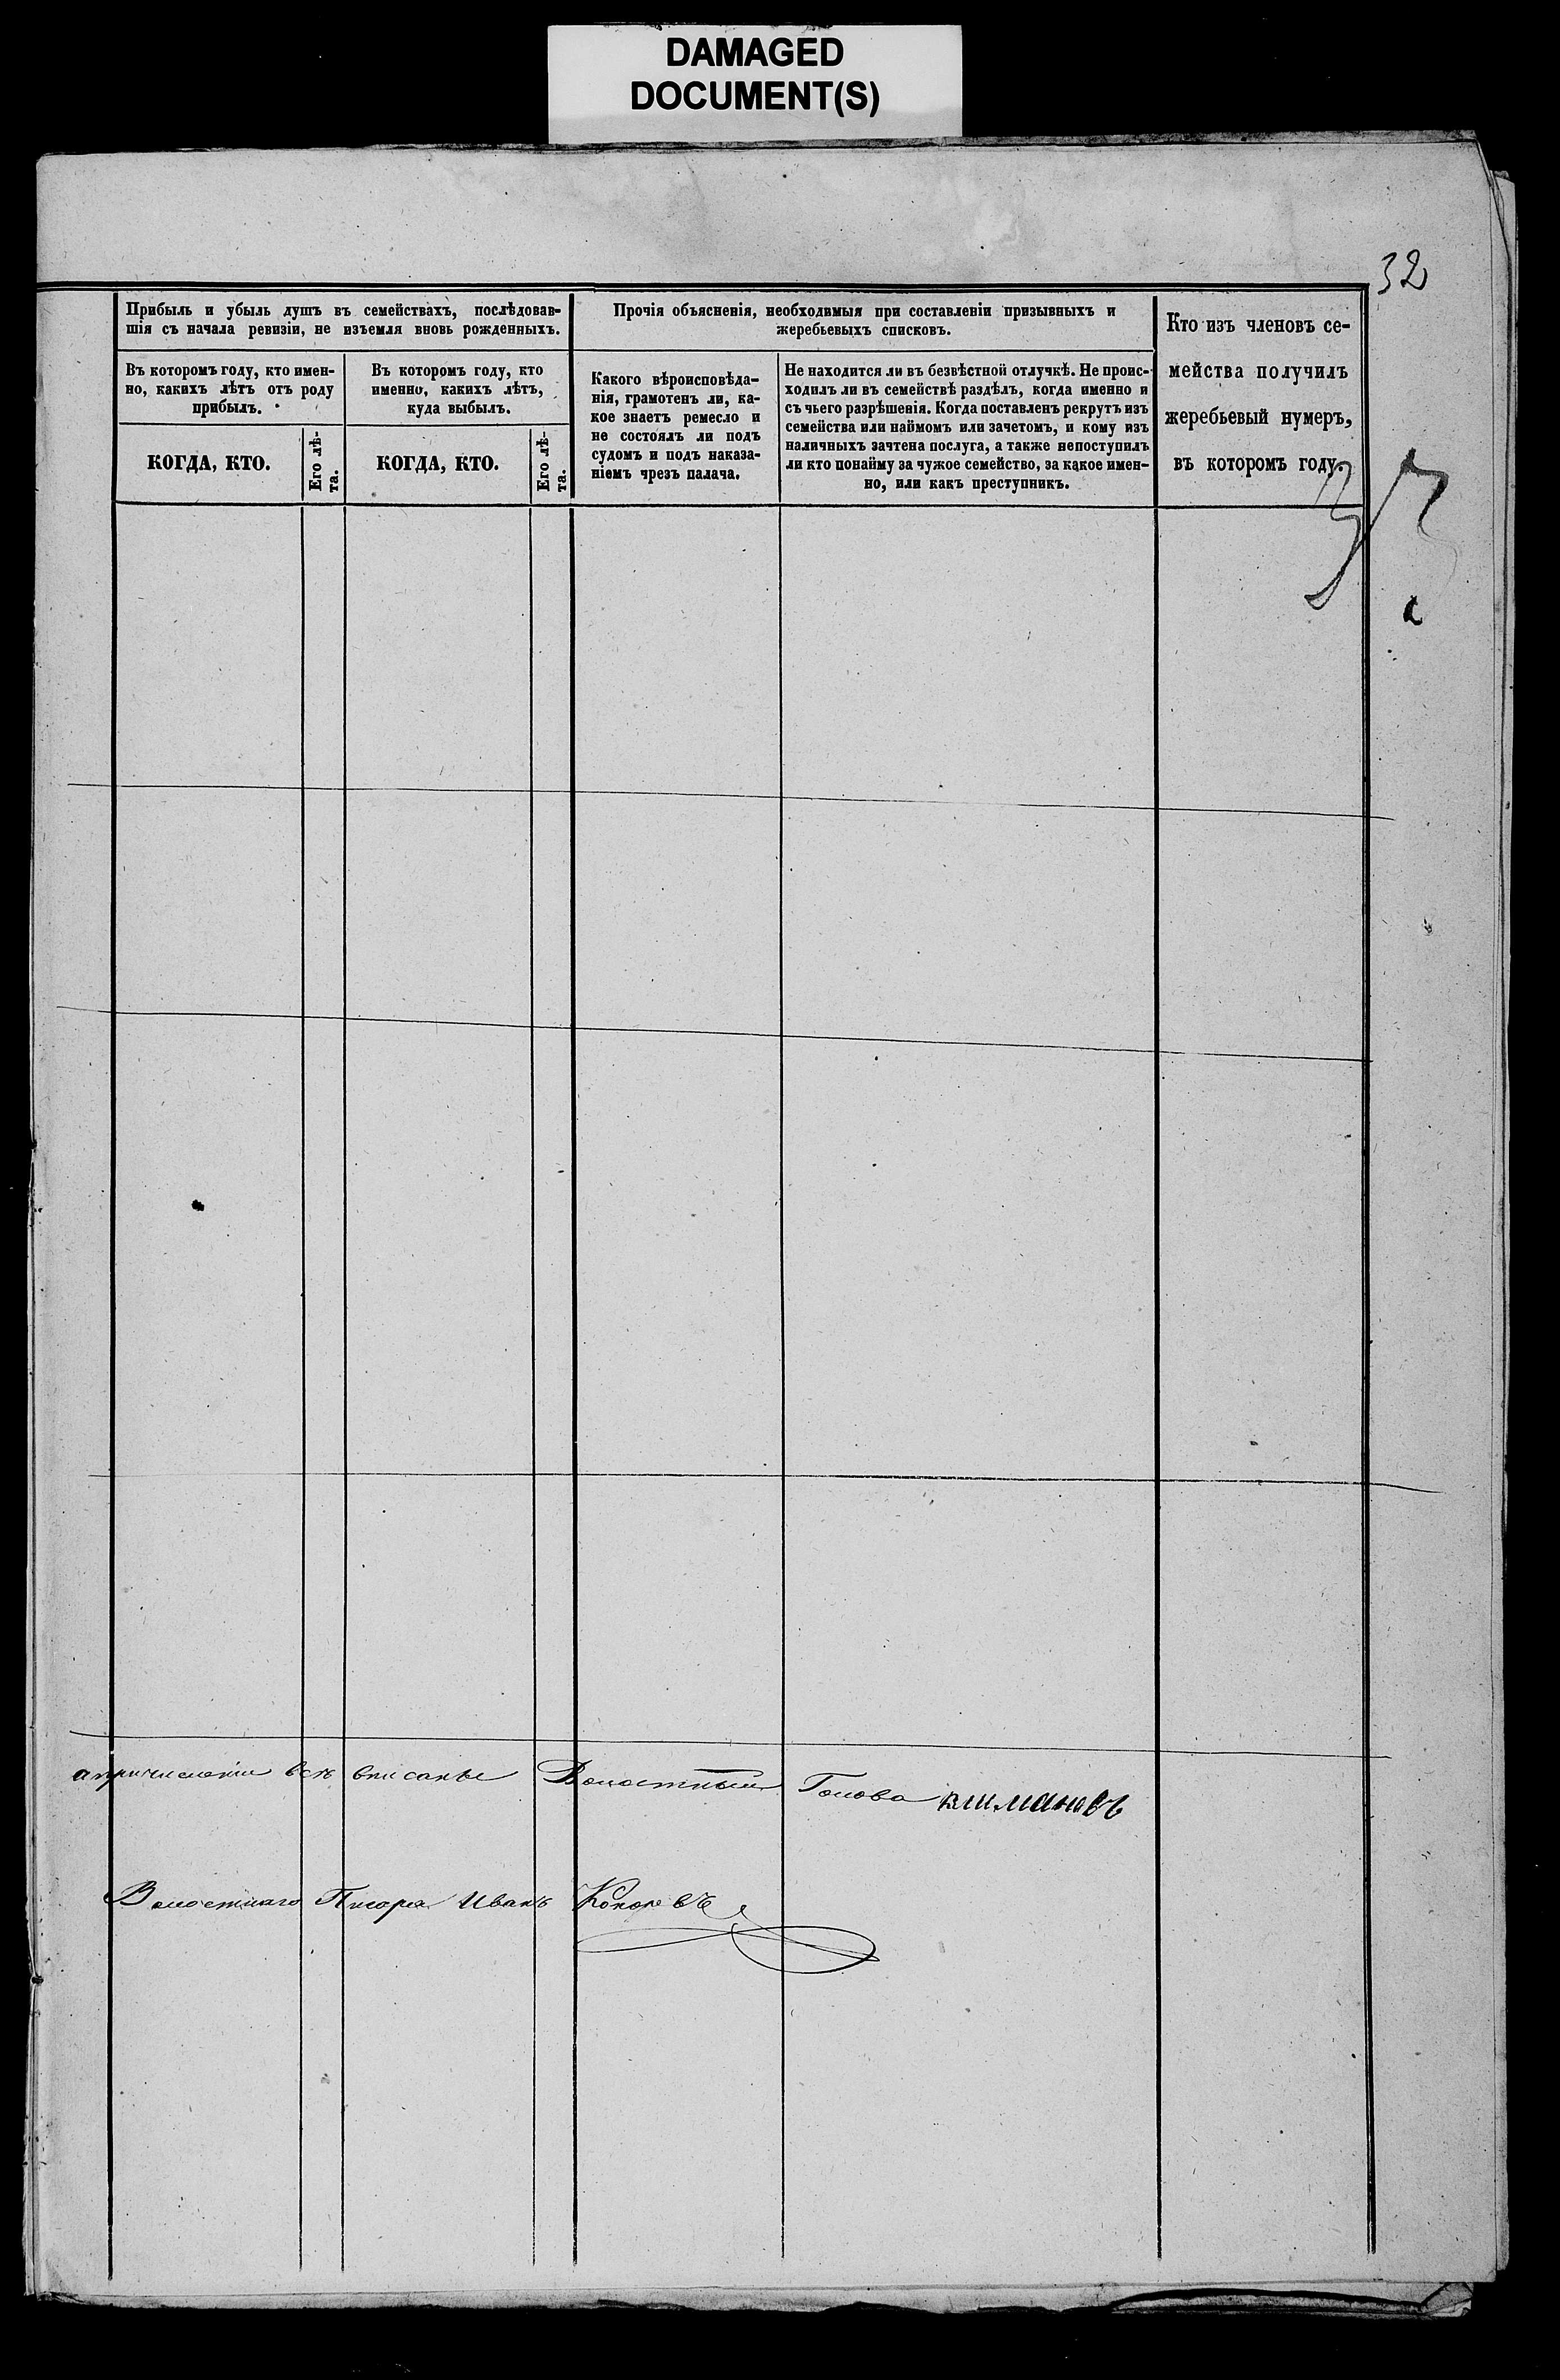 DAMAGED
DOCUMENT(S)
32
Прибыль и убыль душъ въ семействахъ, послѣдовав-
шія съ начала ревизіи, не изъемля вновь рожденныхъ.
Въ которомъ году, кто имен-
но, какихъ лѣтъ отъ роду
прибылъ.
КОГДА, КТО.
Его лѣ-
та.
Въ которомъ году, кто
именно, какихъ лѣтъ,
куда выбылъ.
КОГДА, КТО.
Его лѣ-
та.
Прочія объясненія, необходимыя при составленіи призывныхъ и
жеребьевыхъ списковъ.
Какого вѣроисповѣда-
нія, грамотенъ ли, ка-
кое знаетъ ремесло и
не состоялъ ли подъ
судомъ и подъ наказа-
ніемъ чрезъ палача.
Не находится ли въ безвѣстной отлучкѣ. Не проис-
ходилъ ли въ семействѣ раздѣлъ, когда именно и
съ чьего разрѣшенія. Когда поставленъ рекрутъ изъ
семейства или наймомъ или зачетомъ, и кому изъ
наличныхъ зачтена послуга, а также непоступилъ
ли кто понайму за чужое семейство, за какое имен-
но, или какъ преступникъ.
Кто изъ членовъ се-
мейства получилъ
жеребьевый нумеръ,
въ которомъ году.
вписаны Волостный Голова
Волостнаго Писаря Иванъ